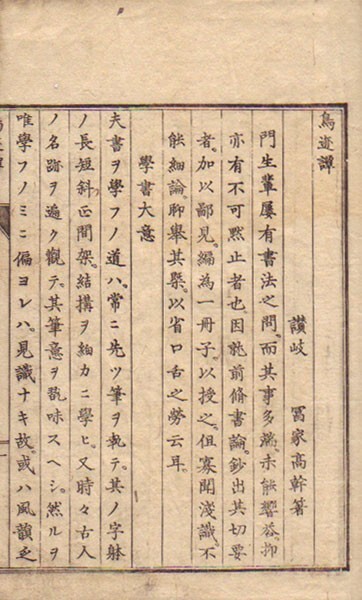 鳥迹譚
讃岐 冨家高幹著
門生輩屢有書法之問。而其事多端。未能響荅。抑
亦有不可黙止者也。因就前脩書論。鈔出其切要
者。加以鄙見。編為一冊子。以授之。但寡聞淺識。不
能細論。聊舉其槩。以省口舌之勞云耳。
學書大意
夫書ヲ學フノ道ハ。常ニ先ツ筆ヲ執テ。其ノ字躰
ノ長短斜正間架。結構ヲ細カニ學ヒ。又時々古人
ノ名跡ヲ遍ク觀テ。其筆意ヲ翫味スヘシ。然ルヲ
唯學フノミニ偏ヨレハ。見識ナキ故。或ハ風韻乏